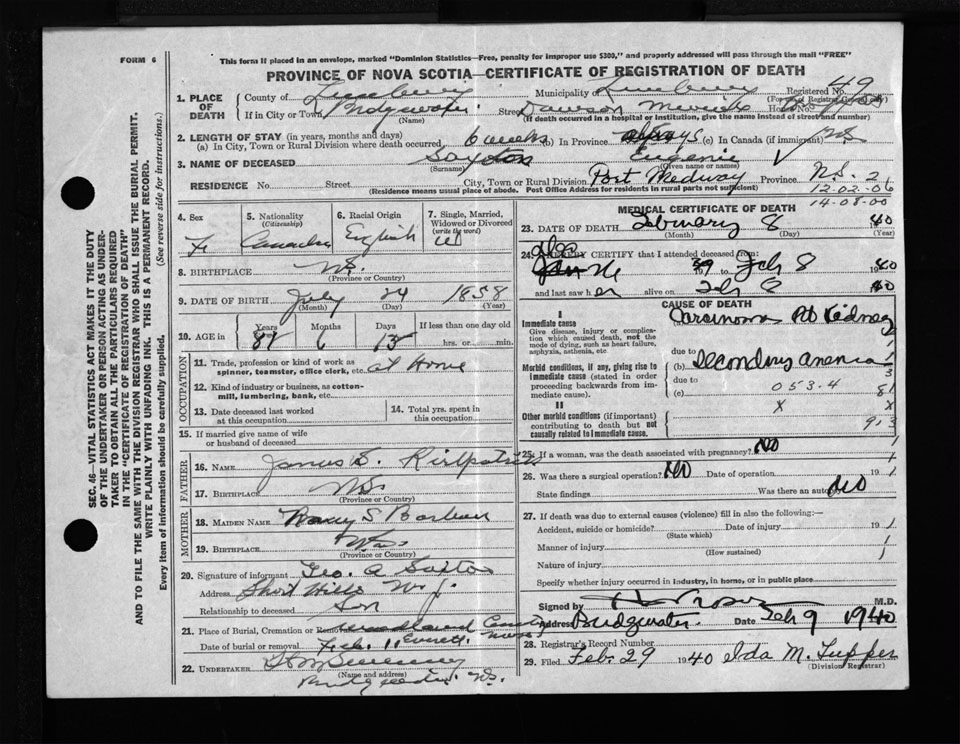 FORM 6
This form if placed in an envelope, marked "Dominion Statistics—Free, penalty for improper use $300," and properly addressed will pass through the mail "FREE"
PROVINCE OF NOVA SCOTIA—CERTIFICATE OF REGISTRATION OF DEATH
SEC. 46—VITAL STATISTICS ACT MAKES IT THE DUTY
OF THE UNDERTAKER OR PERSON ACTING AS UNDER-
TAKER TO OBTAIN ALL THE PARTICULARS REQUIRED
IN THE "CERTIFICATE OF REGISTRATION OF DEATH"
AND TO FILE THE SAME WITH THE DIVISION REGISTRAR WHO SHALL ISSUE THE BURIAL PERMIT.
WRITE PLAINLY WITH UNFADING INK. THIS IS A PERMANENT RECORD.
Every item of information should be carefully supplied. (See reverse side for instructions.)
1. PLACE OF DEATH County of Lunenburg Municipality of Lunenburg Registered No. 49
(For use of Registrar General only)
If in City or Town Bridgewater Street Dawson Memorial House No. Hospital
(Name) (If death occurred in a hospital or institution, give the name instead of street and number)
2. LENGTH OF STAY (in years, months and days)
(a) In City, Town or Rural Division where death occurred 6 weeks (b) In Province always (c) In Canada (if immigrant)
3. NAME OF DECEASED Saxton Eugenie
(Surname) (Given name or names)
RESIDENCE No. Street City, Town or Rural Division Port Medway Province N.S. 2
(Residence means usual place of abode. Post Office Address for residents in rural parts not sufficient)
12-02-06
14-08-00
4. Sex Fe
5. Nationality (Citizenship) Canadian
6. Racial Origin English
7. Single, Married, Widowed or Divorced (write the word) W
8. BIRTHPLACE N.S.
(Province or Country)
9. DATE OF BIRTH July 24 1858
(Month) (Day) (Year)
10. AGE in Years Months Days If less than one day old
6 15 hrs. or min.
OCCUPATION
11. Trade, profession or kind of work as spinner, teamster, office clerk, etc. at Home
12. Kind of industry or business, as cotton-mill, lumbering, bank, etc.
13. Date deceased last worked at this occupation
14. Total yrs. spent in this occupation
15. If married give name of wife or husband of deceased
FATHER
16. NAME James S. Kirkpatrick
17. BIRTHPLACE N.S.
(Province or Country)
MOTHER
18. MAIDEN NAME Nancy S Barbour
19. BIRTHPLACE
(Province or Country)
20. Signature of informant Geo. A Saxton
Address Short Hills N.J.
Relationship to deceased Son
21. Place of Burial, Cremation or Removal Woodland
Everett, Mass
Date of burial or removal Feb. 11
22. UNDERTAKER Sweeney
(Name and address)
Bridgewater. N.S.
MEDICAL CERTIFICATE OF DEATH
23. DATE OF DEATH February 8 1940
(Month) (Day) (Year)
24. I HEREBY CERTIFY that I attended deceased from:
Dec
39 to Feb 8 1940
and last saw her alive on Feb 1940
CAUSE OF DEATH
I
Immediate cause
Give disease, injury or complication which caused death, not the mode of dying, such as heart failure, asphyxia, asthenia, etc
Carcinoma Rt Kidney
due to
Morbid conditions, if any, giving rise to immediate cause (stated in order proceeding backwards from immediate cause).
(b) Secondary anemia
due to
(c) 053-4 81
II
Other morbid conditions (if important) contributing to death but not causally related to immediate cause.
x x
25. If a woman, was the death associated with pregnancy? No
26. Was there a surgical operation? No Date of operation 19
State findings Was there an autopsy No
27. If death was due to external causes (violence) fill in also the following:—
Accident, suicide or homicide? Date of injury 19
(State which)
Manner of injury
(How sustained)
Nature of injury
Specify whether injury occurred in industry, in home, or in public place
Signed by M.D.
Address Bridgewater. Date Feb 9 1940
28. Registrar's Record Number
29. Filed Feb. 29 1940 Ida M. Tupper
(Division Registrar)